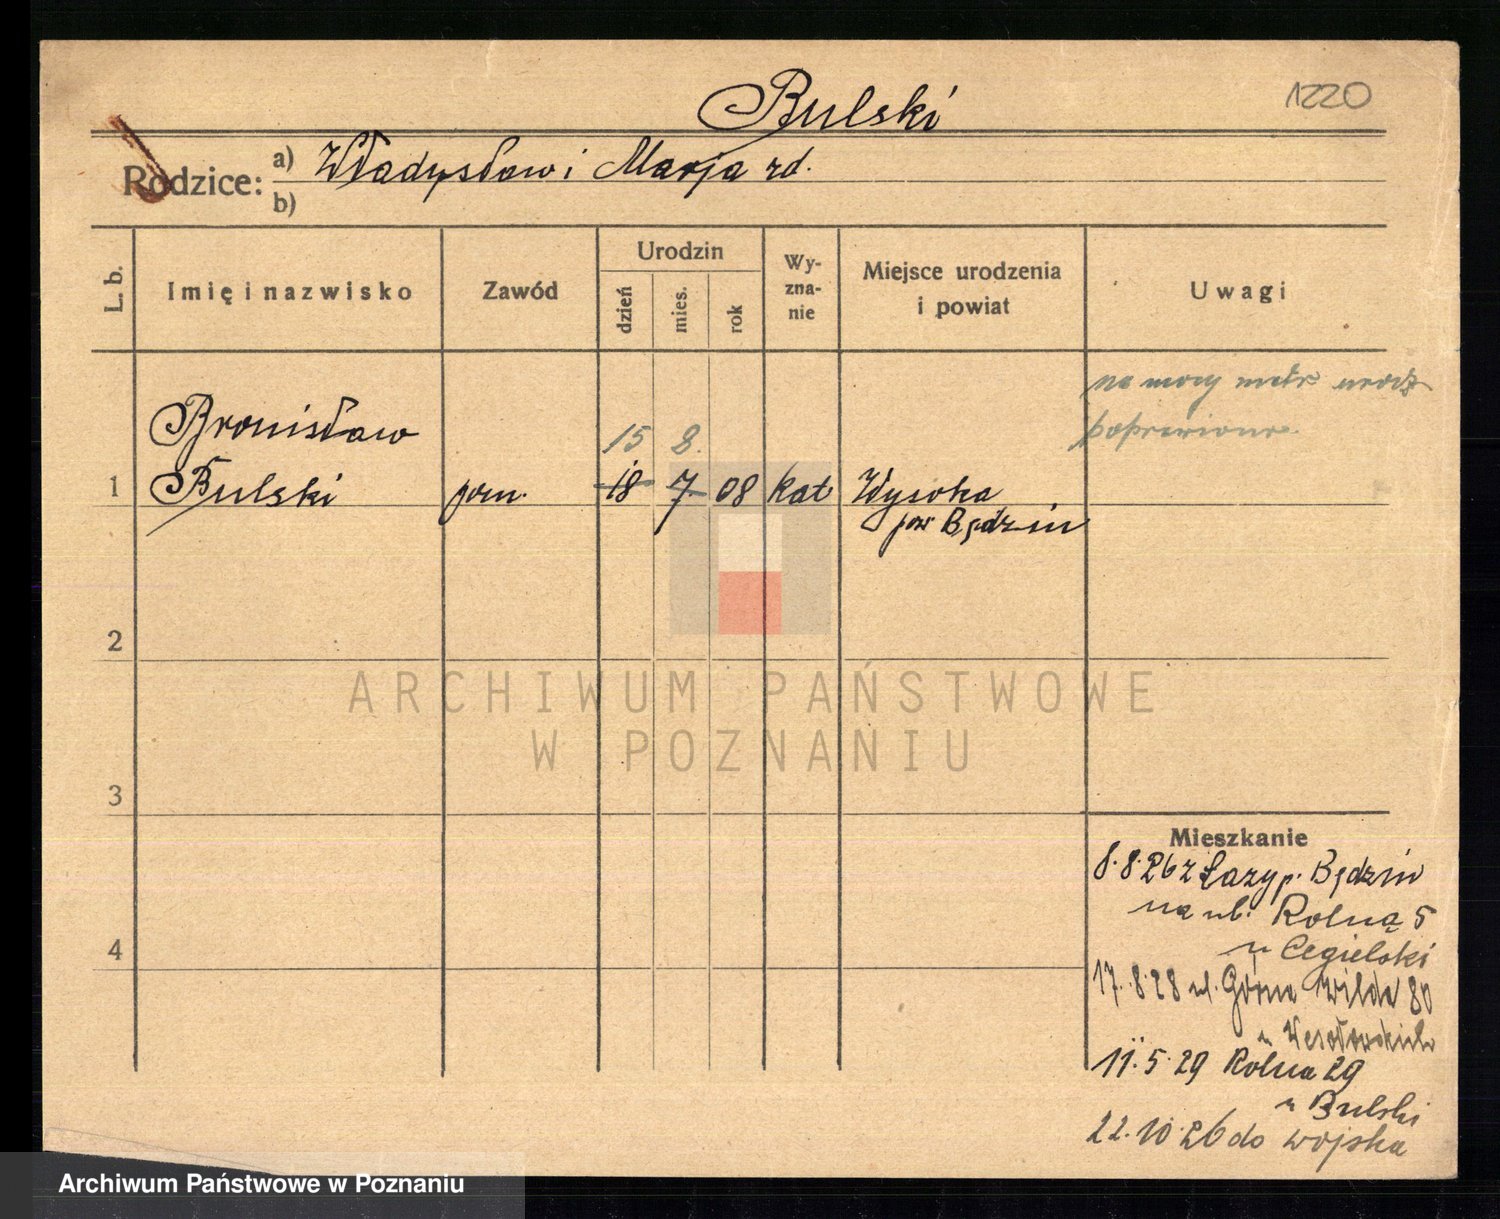 Bulski
1220
Rodzice: a) Władysław i Marja rd.
b)
L. b. Imię i nazwisko Zawód Urodzin dzień mies. rok Wy-zna-nie Miejsce urodzenia i powiat Uwagi
na mocy metr urodz
poprawiono
Bronisław 15 8.
1 Bulski pom. 18 7 08 kat Wysoka
pow Będzin
2
ARCHIWUM PAŃSTWOWE
W POZNANIU
3
Mieszkanie
8.8.26 z Łazy p. Będzin
na ul. Rolną 5
u Cegielski
4
17.8.28 ul. Górna Wilda 80
u Wesołowskich
11.5.29 Rolna 29
u Bulski
22.10.26 do wojska
Archiwum Państwowe w Poznaniu